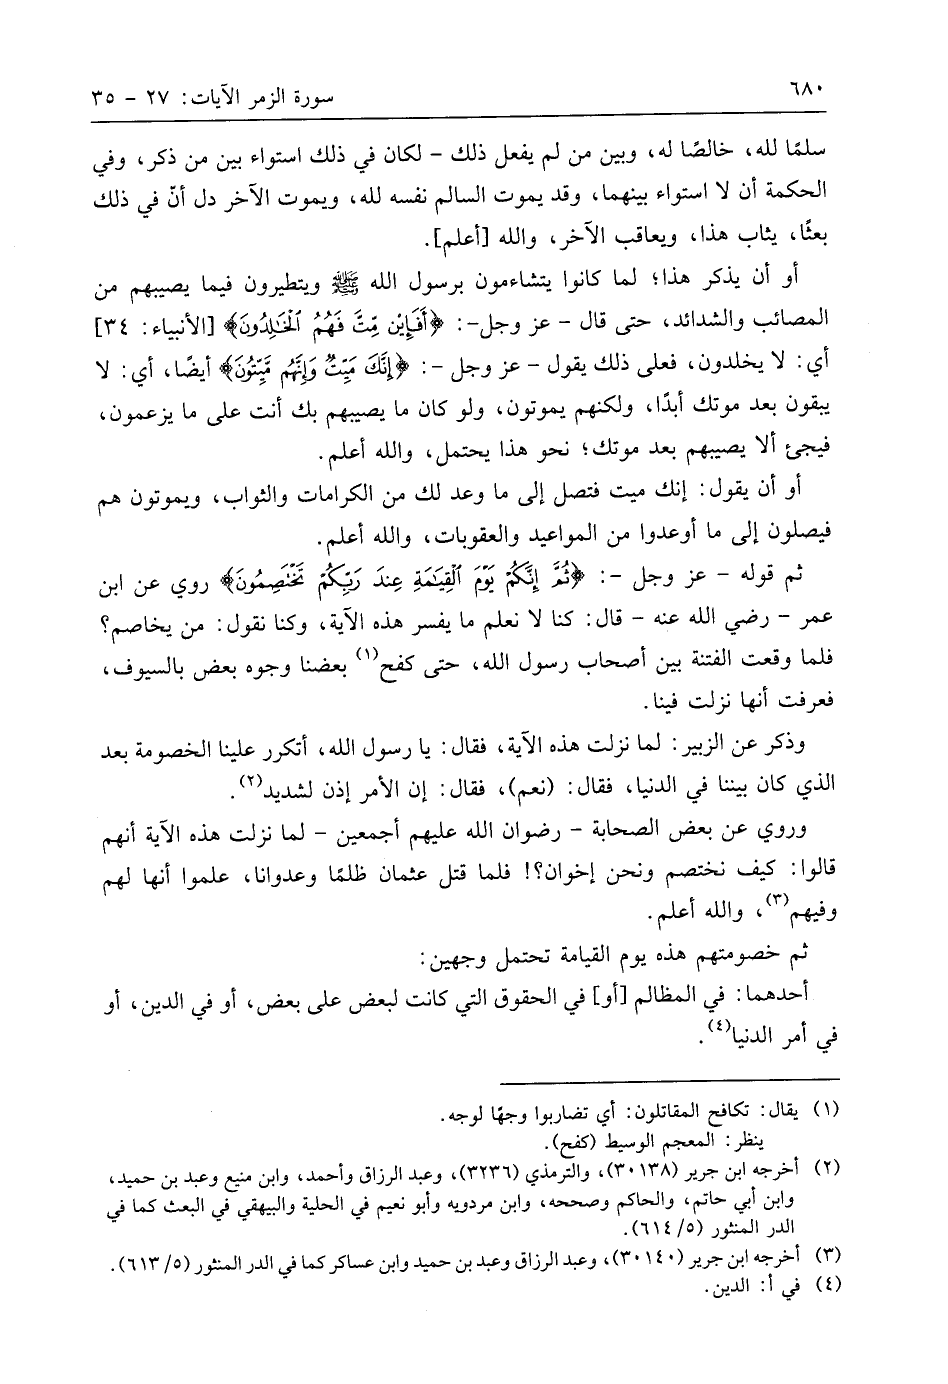 ٦٨٠
سورة الزمر الآيات: ٢٧ - ٣٥
سلمًا لله، خالصًا له، وبين من لم يفعل ذلك – لكان في ذلك استواء بين من ذكر، وفي
الحكمة أن لا استواء بينهما، وقد يموت السالم نفسه لله، ويموت الآخر دل أنّ في ذلك
بعثًا، يثاب هذا، ويعاقب الآخر، والله [أعلم].
أو أن يذكر هذا؛ لما كانوا يتشاءمون برسول الله ﷺ ويتطيرون فيما يصيبهم من
المصائب والشدائد، حتى قال – عز وجل–: ﴿أَفَإِيْن مِّتَّ فَهُمُ ٱلْخَٰلِدُونَ﴾ [الأنبياء: ٣٤]
أي: لا يخلدون، فعلى ذلك يقول – عز وجل –: ﴿إِنَّكَ مَيِّتٌ وَإِنَّهُم مَّيِّتُونَ﴾ أيضًا، أي: لا
يبقون بعد موتك أبدًا، ولكنهم يموتون، ولو كان ما يصيبهم بك أنت على ما يزعمون،
فيجئ ألا يصيبهم بعد موتك؛ نحو هذا يحتمل، والله أعلم.
أو أن يقول: إنك ميت فتصل إلى ما وعد لك من الكرامات والثواب، ويموتون هم
فيصلون إلى ما أوعدوا من المواعيد والعقوبات، والله أعلم.
ثم قوله – عز وجل –: ﴿ثُمَّ إِنَّكُمْ يَوْمَ ٱلْقِيَٰمَةِ عِندَ رَبِّكُمْ تَخْتَصِمُونَ﴾ روي عن ابن
عمر – رضي الله عنه – قال: كنا لا نعلم ما يفسر هذه الآية، وكنا نقول: من يخاصم؟
فلما وقعت الفتنة بين أصحاب رسول الله، حتى كفح(١) بعضنا وجوه بعض بالسيوف،
فعرفت أنها نزلت فينا.
وذكر عن الزبير: لما نزلت هذه الآية، فقال: يا رسول الله، أتكرر علينا الخصومة بعد
الذي كان بيننا في الدنيا، فقال: (نعم)، فقال: إن الأمر إذن لشديد(٢).
وروي عن بعض الصحابة – رضوان الله عليهم أجمعين – لما نزلت هذه الآية أنهم
قالوا: كيف نختصم ونحن إخوان؟! فلما قتل عثمان ظلمًا وعدوانا، علموا أنها لهم
وفيهم(٣)، والله أعلم.
ثم خصومتهم هذه يوم القيامة تحتمل وجهين:
أحدهما: في المظالم [أو] في الحقوق التي كانت لبعض على بعض، أو في الدين، أو
في أمر الدنيا(٤).
(١) يقال: تكافح المقاتلون: أي تضاربوا وجهًا لوجه.
ينظر: المعجم الوسيط (كفح).
(٢) أخرجه ابن جرير (٣٠١٣٨)، والترمذي (٣٢٣٦)، وعبد الرزاق وأحمد، وابن منيع وعبد بن حميد،
وابن أبي حاتم، والحاكم وصححه، وابن مردويه وأبو نعيم في الحلية والبيهقي في البعث كما في
الدر المنثور (٥/ ٦١٤).
(٣) أخرجه ابن جرير (٣٠١٤٠)، وعبد الرزاق وعبد بن حميد وابن عساكر كما في الدر المنثور (٥/ ٦١٣).
(٤) في أ: الدين.